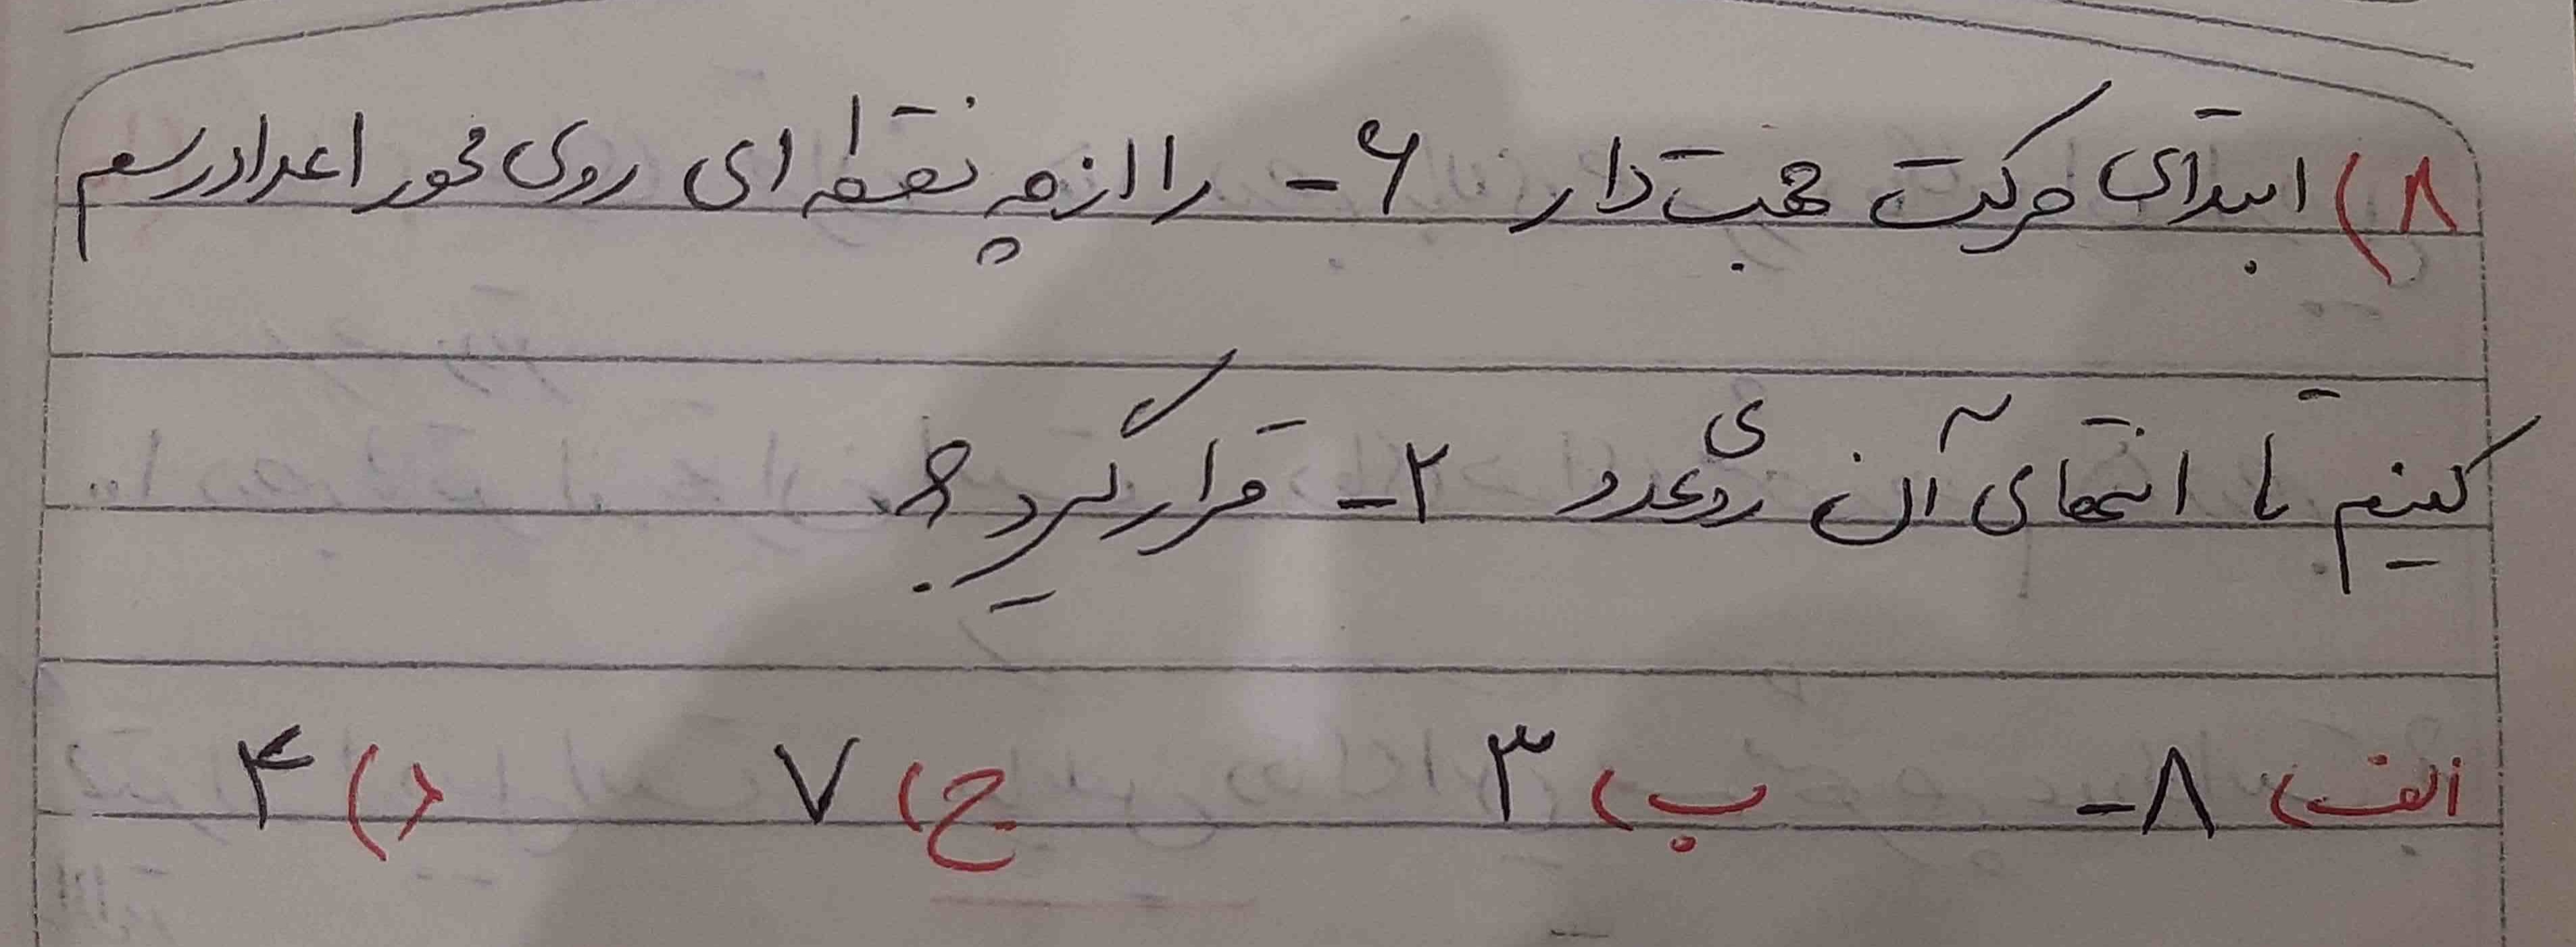 ۸) ابتدای حرکت جهت دار ۶- را از چه نقطه ای روی محور اعداد رسم
کنیم تا انتهای آن روی عدد ۲- قرار گیرد؟
الف) ۸- ب) ۳ ج) ۷ د) ۴